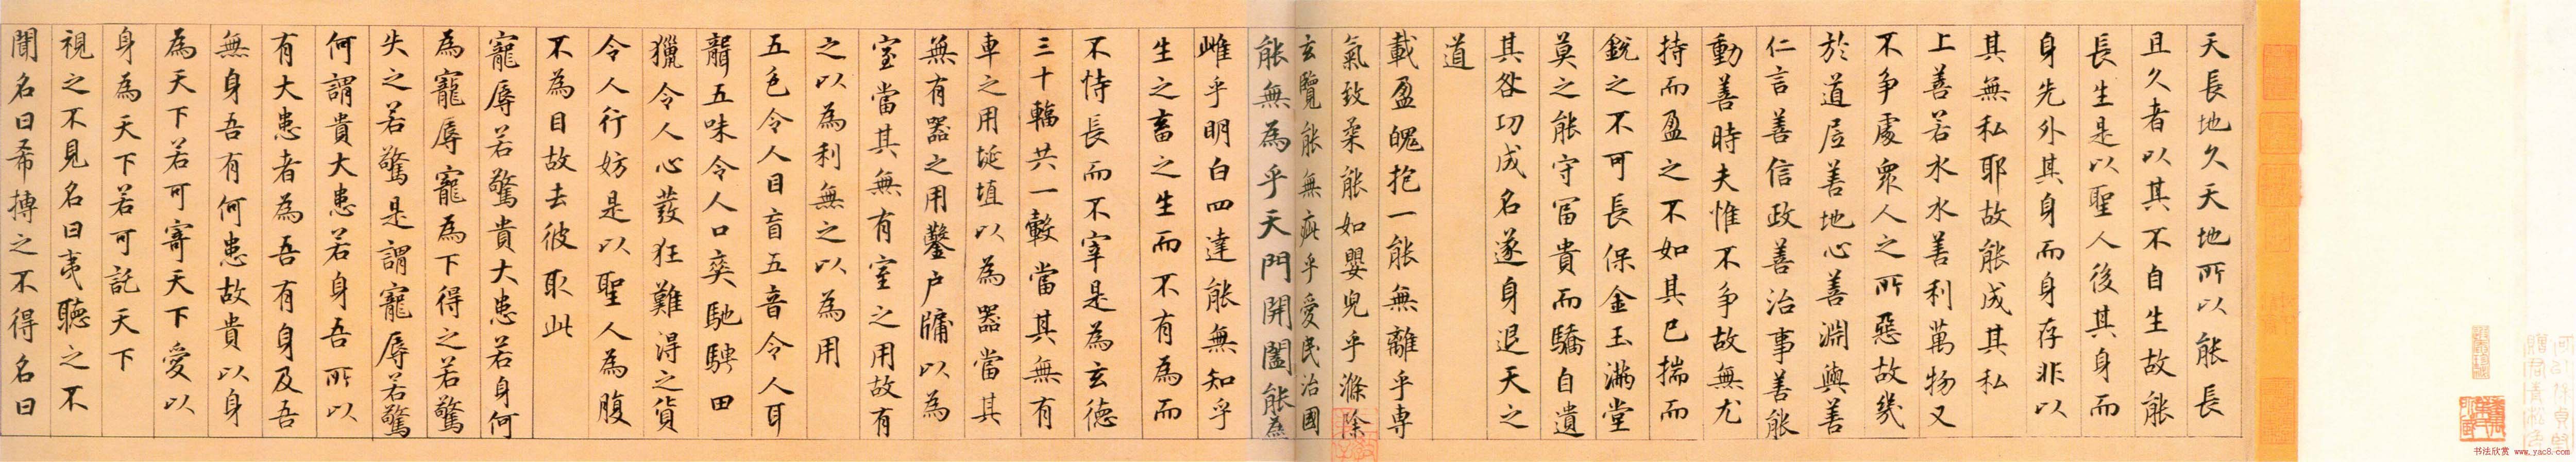 天長地久天地所以能長
且久者以其不自生故能
長生是以聖人後其身而
身先外其身而身存非以
其無私耶故能成其私
上善若水水善利萬物又
不爭處衆人之所惡故幾
於道居善地心善淵與善
仁言善信政善治事善能
動善時夫惟不爭故無尤
持而盈之不如其已揣而
銳之不可長保金玉滿堂
莫之能守冨貴而驕自遺
其咎功成名遂身退天之
道
載盈魄抱一能無離乎専
氣致柔能如嬰兒乎滌除
玄覽能無疵乎愛民治國
能無為乎天門開闔能為
雌乎明白四達能無知乎
生之畜之生而不有為而
不恃長而不宰是為玄德
三十輻共一轂當其無有
車之用埏埴以為器當其
無有器之用鑿户牖以為
室當其無有室之用故有
之以為利無之以為用
五色令人目盲五音令人耳
聾五味令人口爽馳騁田
獵令人心發狂難淂之貨
令人行妨是以聖人為腹
不為目故去彼取此
寵辱若驚貴大患若身何
為寵辱寵為下得之若驚
失之若驚是謂寵辱若驚
何謂貴大患若身吾所以
有大患者為吾有身及吾
無身吾有何患故貴以身
為天下若可寄天下愛以
身為天下若可託天下
視之不見名曰夷聽之不
聞名曰希搏之不得名曰
书法欣赏 www.yac8.com